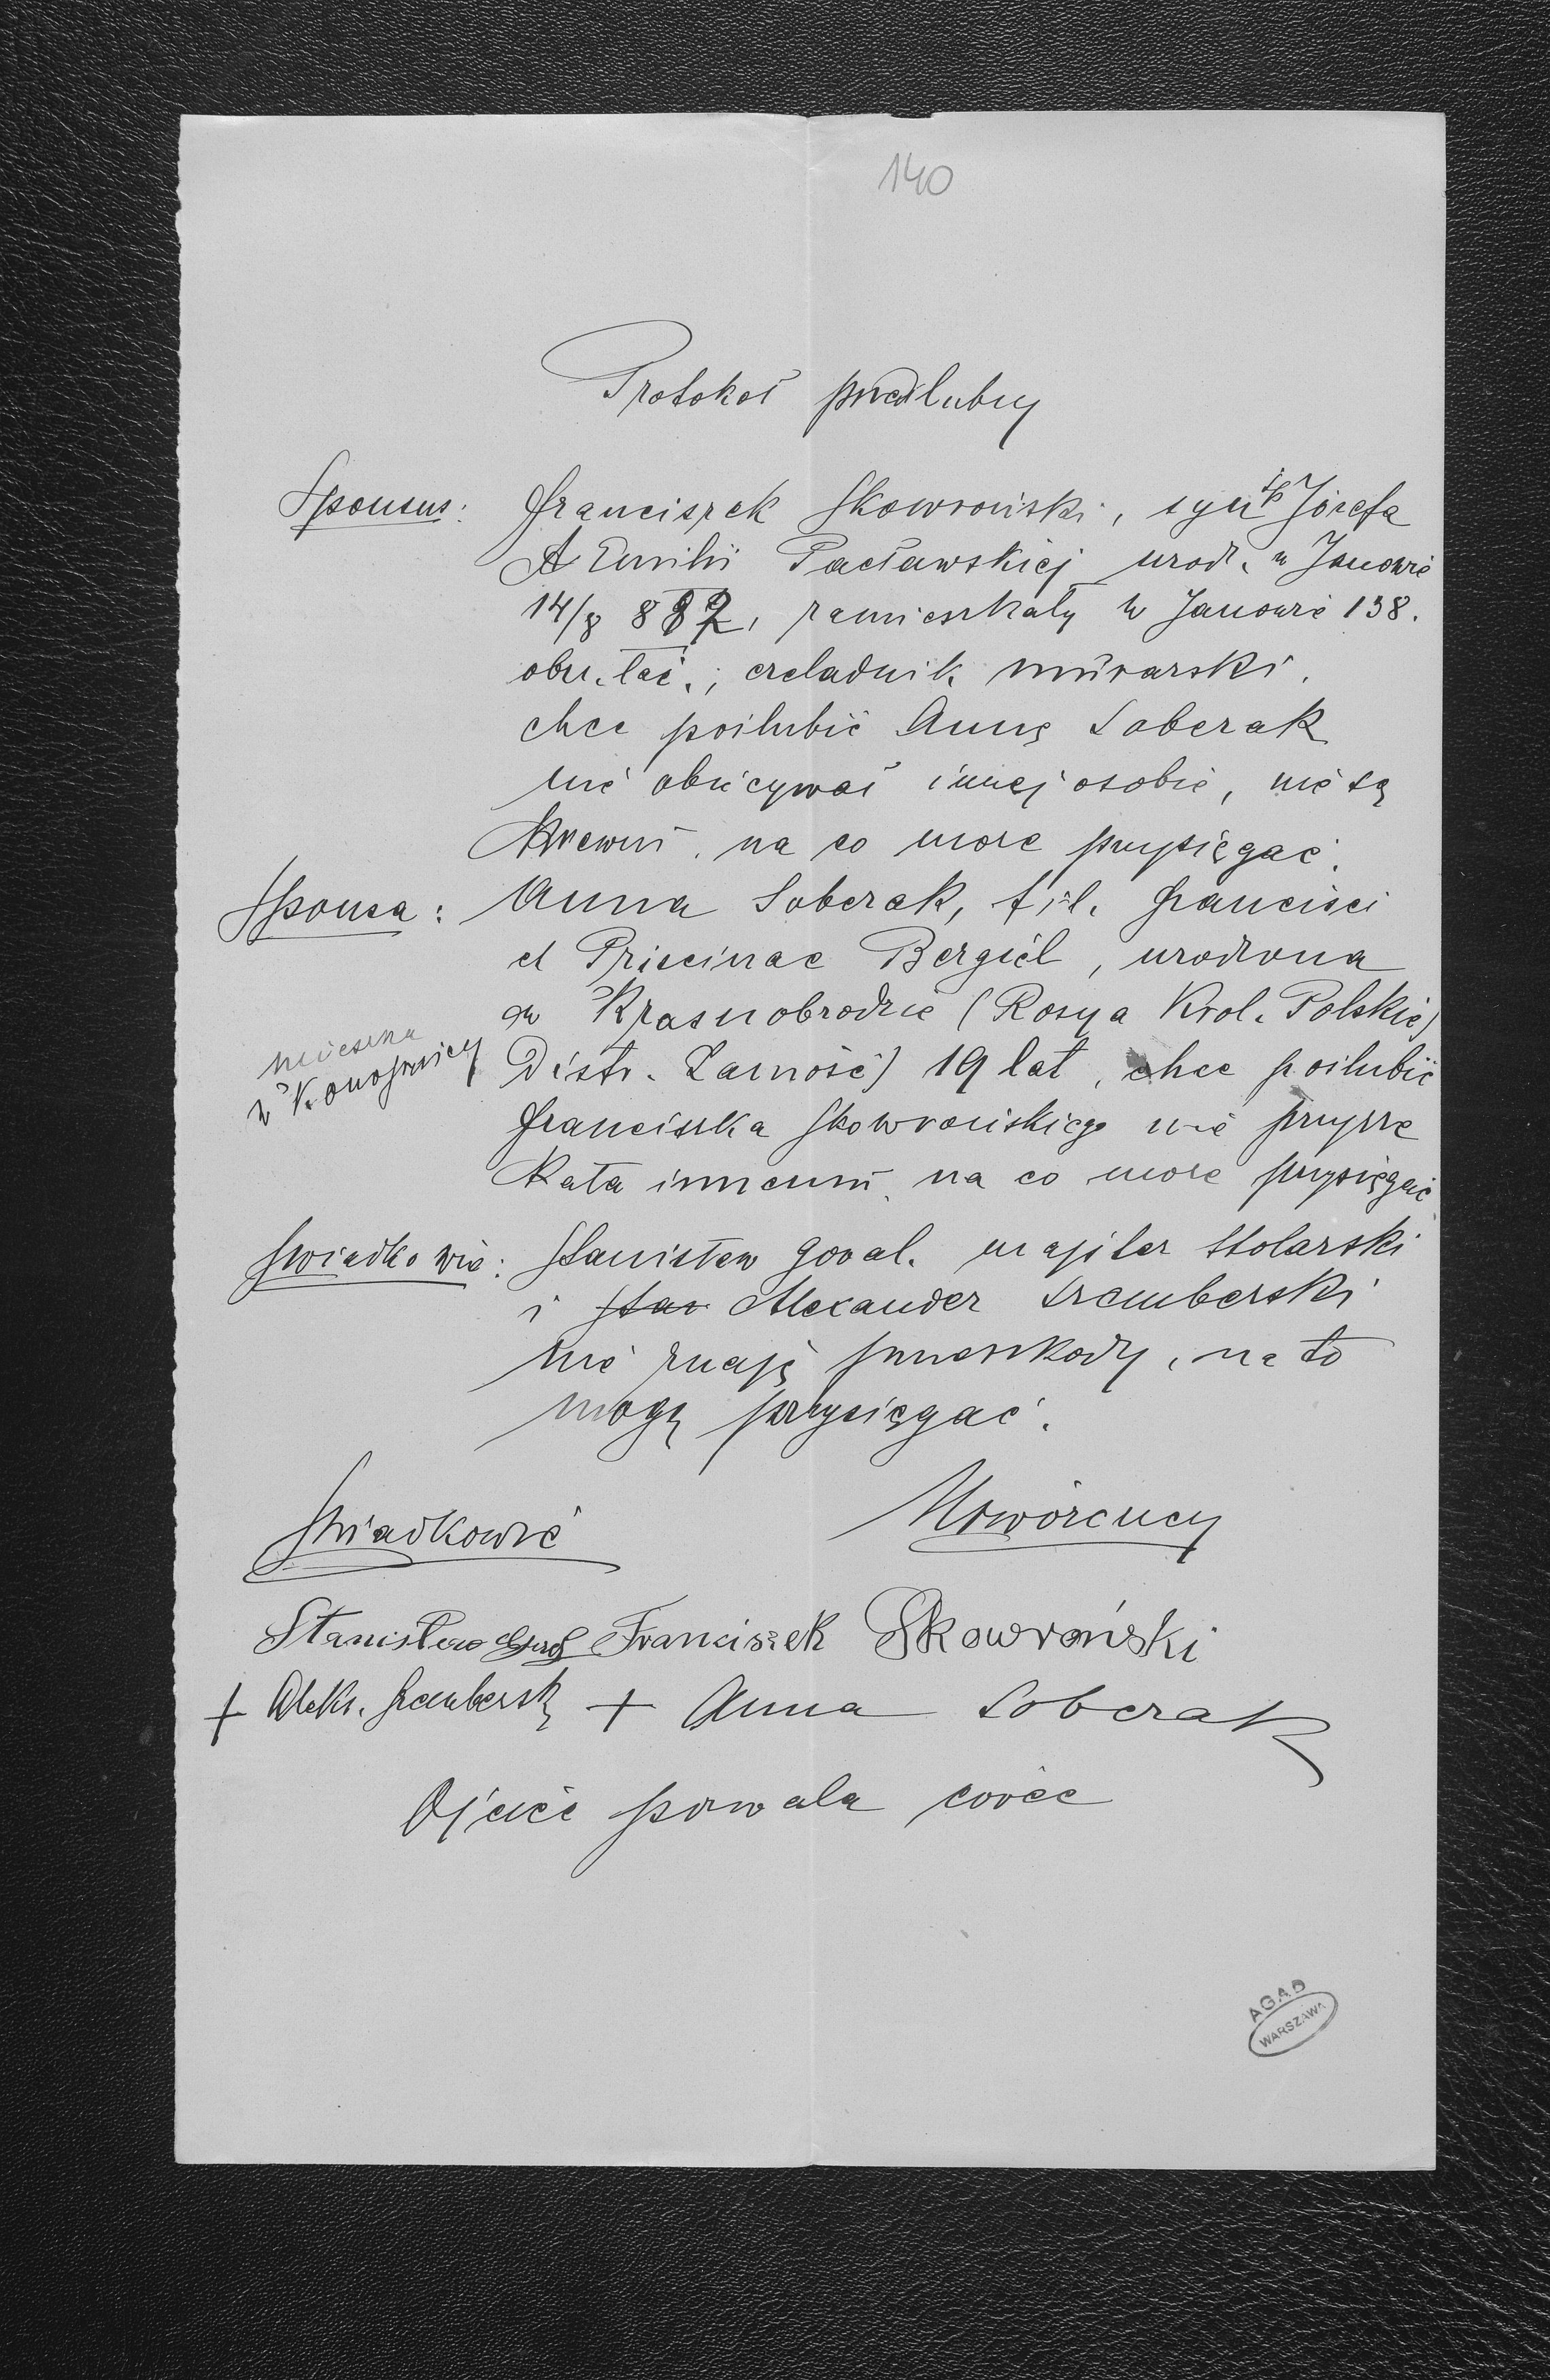 140
Protokół przedślubny
Sponsus: Franciszek Skowroński, syn śp Józefa
et Emilii Pacławskiej urodz. w Janowie
14/8 887, zamieszkały w Janowie 138.
obrz. łać.; czeladnik murarski.
chce poślubić Annę Soberak
nie obiecywał innej osobie, nie są
krewni, na co może przysięgać.
Sponsa: Anna Soberak, fil. Francisci
et Priscinae Bergiel, urodzona
w Krasnobrodzie (Rosya Król. Polskie)
mieszka
w Konopnicy
Distr. Zamość) 19 lat, chce poślubić
Franciszka Skowrońskiego nie przyrze
kała innemu, na co może przysięgać
Świadkowie: Stanisław Goral. majster stolarski
i Star Alexander Szemberski
nie znają przeszkody, na to
mogą przysięgać.
Świadkowie Nowożeńcy
Stanisław Franciszek Skowroński
+ Aleks. Szembersk + Anna Soberak
Ojciec pozwala córce
AGAD
WARSZAWA